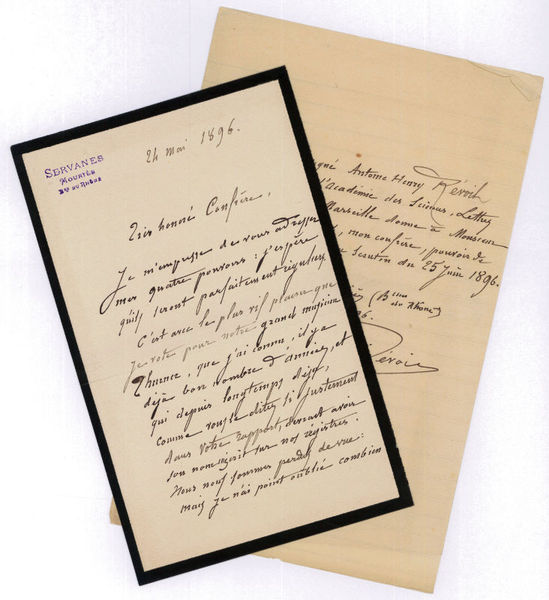 SERVANES
MOURIÈS
Bᵉˢ DU RHÔNE
24 mai 1896.
Très honoré Confrère,
Je m'empresse de vous adresser
mes quatre pouvoirs : j'espère
qu'ils seront parfaitement réguliers.
C'est avec le plus vif plaisir que
je vote pour notre grand musicien
que j'ai connu, il y a
déjà bon nombre d'années, et
qui depuis longtemps déjà,
comme vous le dites si justement
dans votre rapport, devrait avoir
son nom inscrit sur nos régistres.
Nous nous sommes perdus de vue :
mais je n'ai point oublié combien
signé Antoine Henry Révoil
l'Académie des Sciences, Lettres
Marseille donne à Monsieur
, mon confrère, pouvoir de
scrutin du 25 Juin 1896.
(Bouches
du Rhône)
96.
Révoil